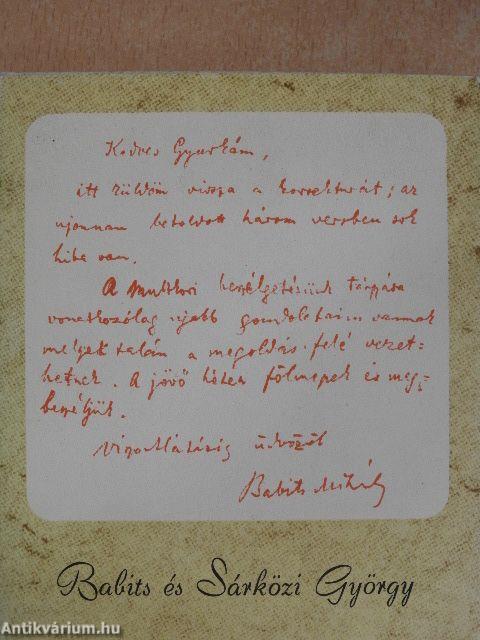 Kedves Gyurkám,
itt küldöm vissza a korrekturát; az
ujonnan betoldott három versben sok
hiba van.
A multkori beszélgetésünk tárgyára
vonatkozólag ujabb gondolataim vannak
melyek talán a megoldás felé vezet-
hetnek. A jövő héten fölmegyek és meg-
beszéljük.
Viszontlátásig üdvözöl
Babits Mihály
Babits és Sárközi György
Antikvárium.hu